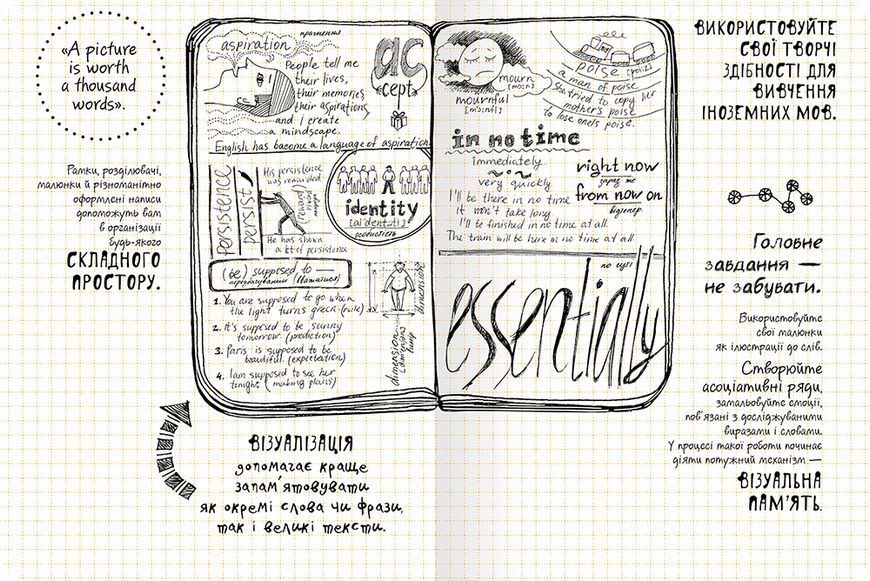 «A picture
is worth
a thousand
words».
Рамки, розділювачі,
малюнки й різноманітно
оформлені написи
допоможуть вам
в організації
будь-якого
СКЛАДНОГО
ПРОСТОРУ.
aspiration
прагнення
People tell me
their lives,
their memories,
their aspirations,
and I create
a mindscape.
English has become a language of aspiration.
ac
cept
persistence
persist
His persistence
was rewarded
(reward)
He has shown
a lot of persistence
identity
[aɪˈdentəti]
особистість
(be) supposed to —
1. You are supposed to go when
the light turns green. (rule)
2. It's supposed to be sunny
tomorrow. (prediction)
3. Paris is supposed to be
beautiful. (expectation)
4. I am supposed to see her
tonight (making plans)
dimension
dimensions
mourn
[mɔ:n]
mournful
[ˈmɔ:nfl]
poise [pɔɪz]
a man of poise
She tried to copy her
mother's poise
to lose one's poise.
in no time
immediately
very quickly
right now
зараз же
from now on
віднепер
I'll be there in no time
It won't take long
I'll be finished in no time at all
The train will be here in no time at all
по суті
essentially
ВІЗУАЛІЗАЦІЯ
допомагає краще
запам'ятовувати
як окремі слова чи фрази,
так і великі тексти.
ВИКОРИСТОВУЙТЕ
СВОЇ ТВОРЧІ
ЗДІБНОСТІ ДЛЯ
ВИВЧЕННЯ
ІНОЗЕМНИХ МОВ.
Головне
завдання —
не забувати.
Використовуйте
свої малюнки
як ілюстрації до слів.
Створюйте
асоціативні ряди,
замальовуйте емоції,
пов'язані з досліджуваними
виразами і словами.
У процесі такої роботи починає
діяти потужний механізм —
ВІЗУАЛЬНА
ПАМ'ЯТЬ.